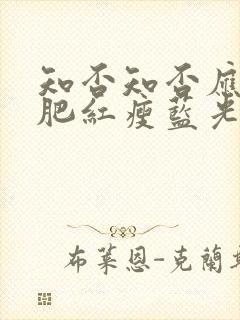 知否知否應
肥紅瘦藍光
布萊恩-克蘭